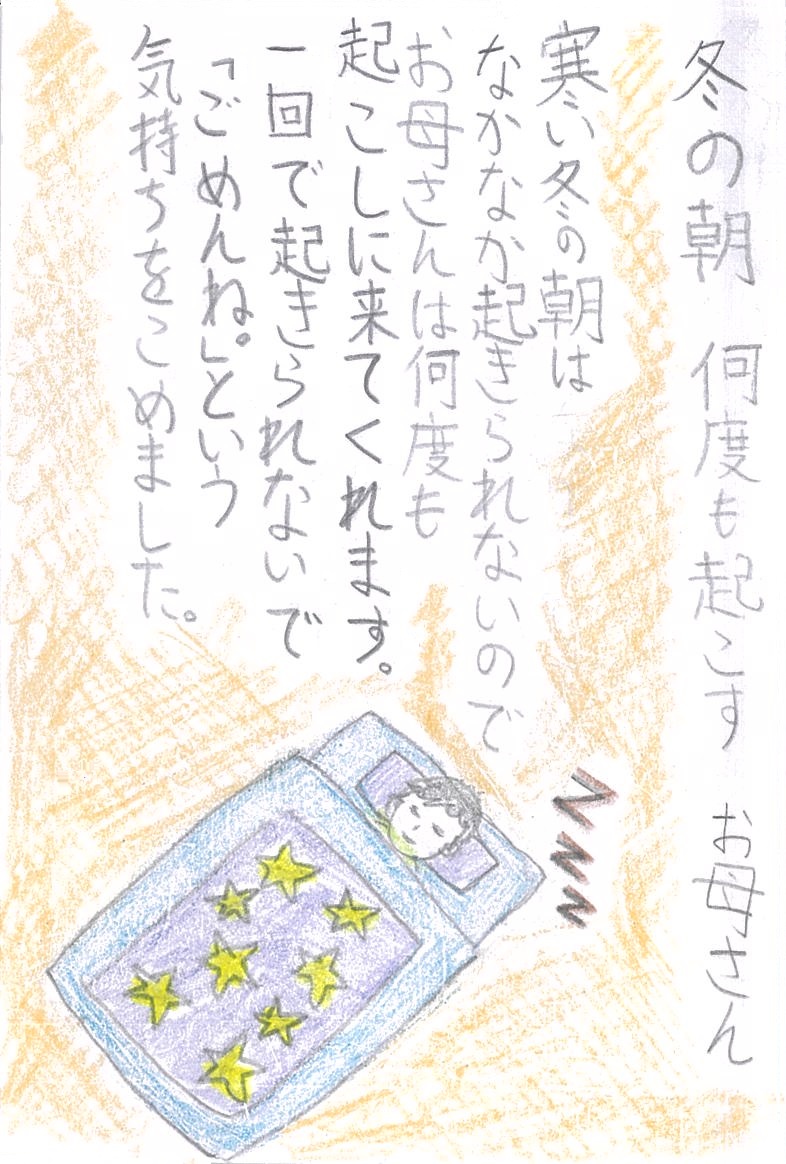 冬の朝　何度も起こす　お母さん
寒い冬の朝は
なかなか起きられないので
お母さんは何度も
起こしに来てくれます。
一回で起きられないで
「ごめんね。」という
気持ちをこめました。
ZZZ